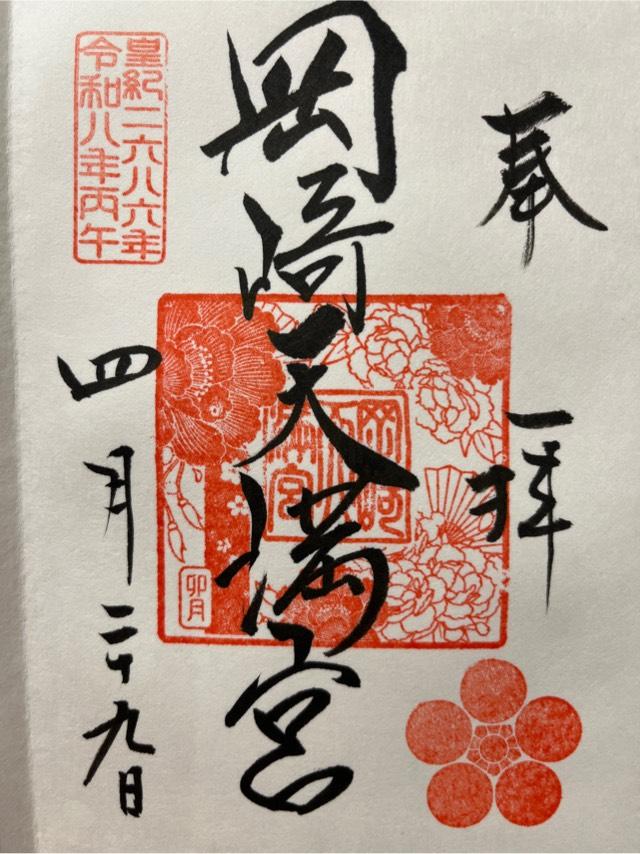 奉拝
岡崎天満宮
皇紀二六八六年
令和八年丙午
四月二十九日
卯月